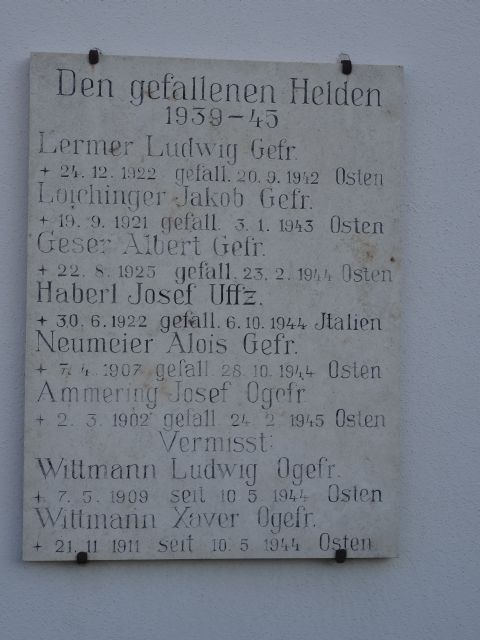 Den gefallenen Helden
1939-45
Lermer Ludwig Gefr.
+ 24. 12. 1922 gefall. 20. 9. 1942 Osten
Loichinger Jakob Gefr.
+ 19. 9. 1921 gefall. 3. 1. 1943 Osten
Geser Albert Gefr.
+ 22. 8. 1925 gefall. 23. 2. 1944 Osten
Haberl Josef Uffz.
+ 30. 6. 1922 gefall. 6. 10. 1944 Jtalien
Neumeier Alois Gefr.
+ 7. 4. 1907 gefall. 28. 10. 1944 Osten
Ammering Josef Ogefr
+ 2. 3. 1902 gefall. 24. 2. 1945 Osten
Vermisst:
Wittmann Ludwig Ogefr.
+ 7. 5. 1909 seit 10 5 1944 Osten
Wittmann Xaver Ogefr.
+ 21. 11 1911 seit 10. 5. 1944 Osten